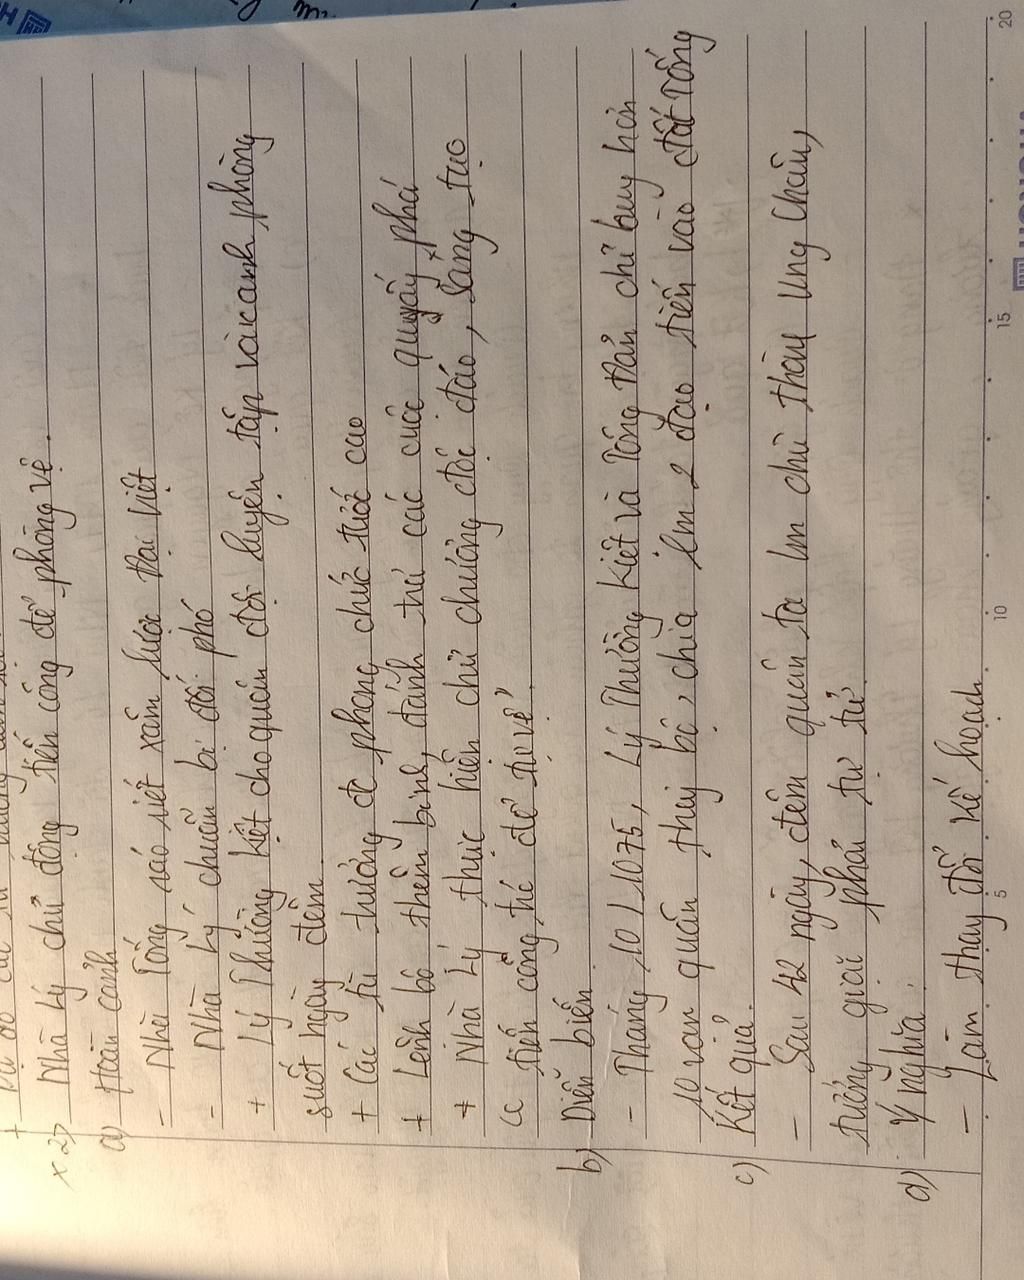 x 2) Nhà Lý chủ động tiến công để phòng vệ.
a) Hoàn cảnh
- Nhà Tống ráo riết xâm lược Đại Việt
- Nhà Lý chuẩn bị đối phó
+ Lý Thường Kiệt cho quân đội luyện tập và canh phòng
suốt ngày đêm.
+ Các tù trưởng đc phong chức tước cao
+ Lệnh bổ thêm binh, đánh trả các cuộc quấy phá
+ Nhà Lý thực hiện chủ chương độc đáo, sáng tạo
"tiến công trc để tự vệ".
b) Diễn biến
- Tháng 10/1075, Lý Thường Kiệt và Tông Đản chỉ huy hơn
10 vạn quân thủy bộ, chia lm 2 đạo tiến vào đất Tống
c) Kết quả.
- Sau 42 ngày đêm quân ta lm chủ thành Ung Châu,
tướng giặc phải tự tử.
d) Ý nghĩa.
- Làm thay đổi kế hoạch
5 10 15 20